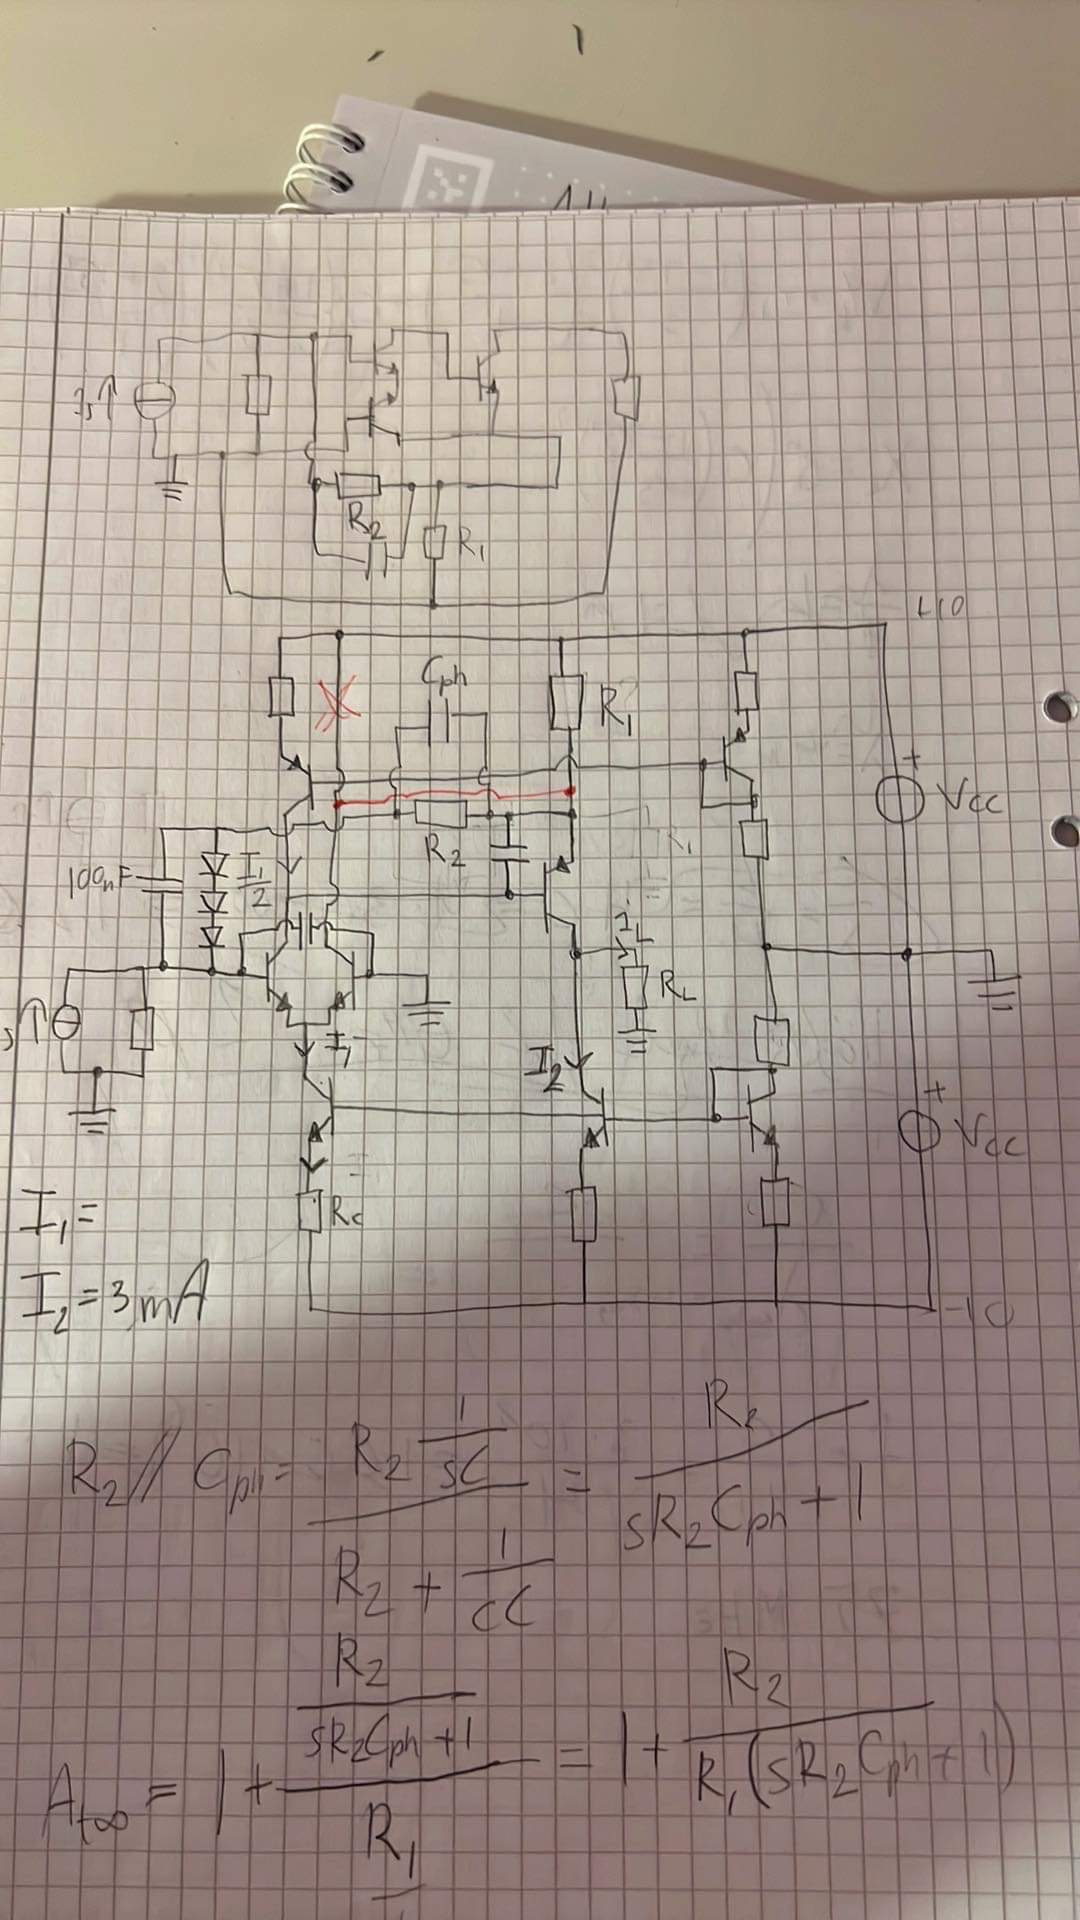 R₂
R₁
+10
Cph
R₁
Vcc
R₂
100nF
I₁/2
I_L
R_L
I₁
I₂
Vcc
Rc
I₁ =
I₂ = 3mA
-10
R₂ // Cph = (R₂ 1/sC) / (R₂ + 1/cC) = R₂ / (sR₂Cph + 1)
At∞ = 1 + (R₂ / (sR₂Cph + 1)) / R₁ = 1 + R₂ / (R₁(sR₂Cph + 1))